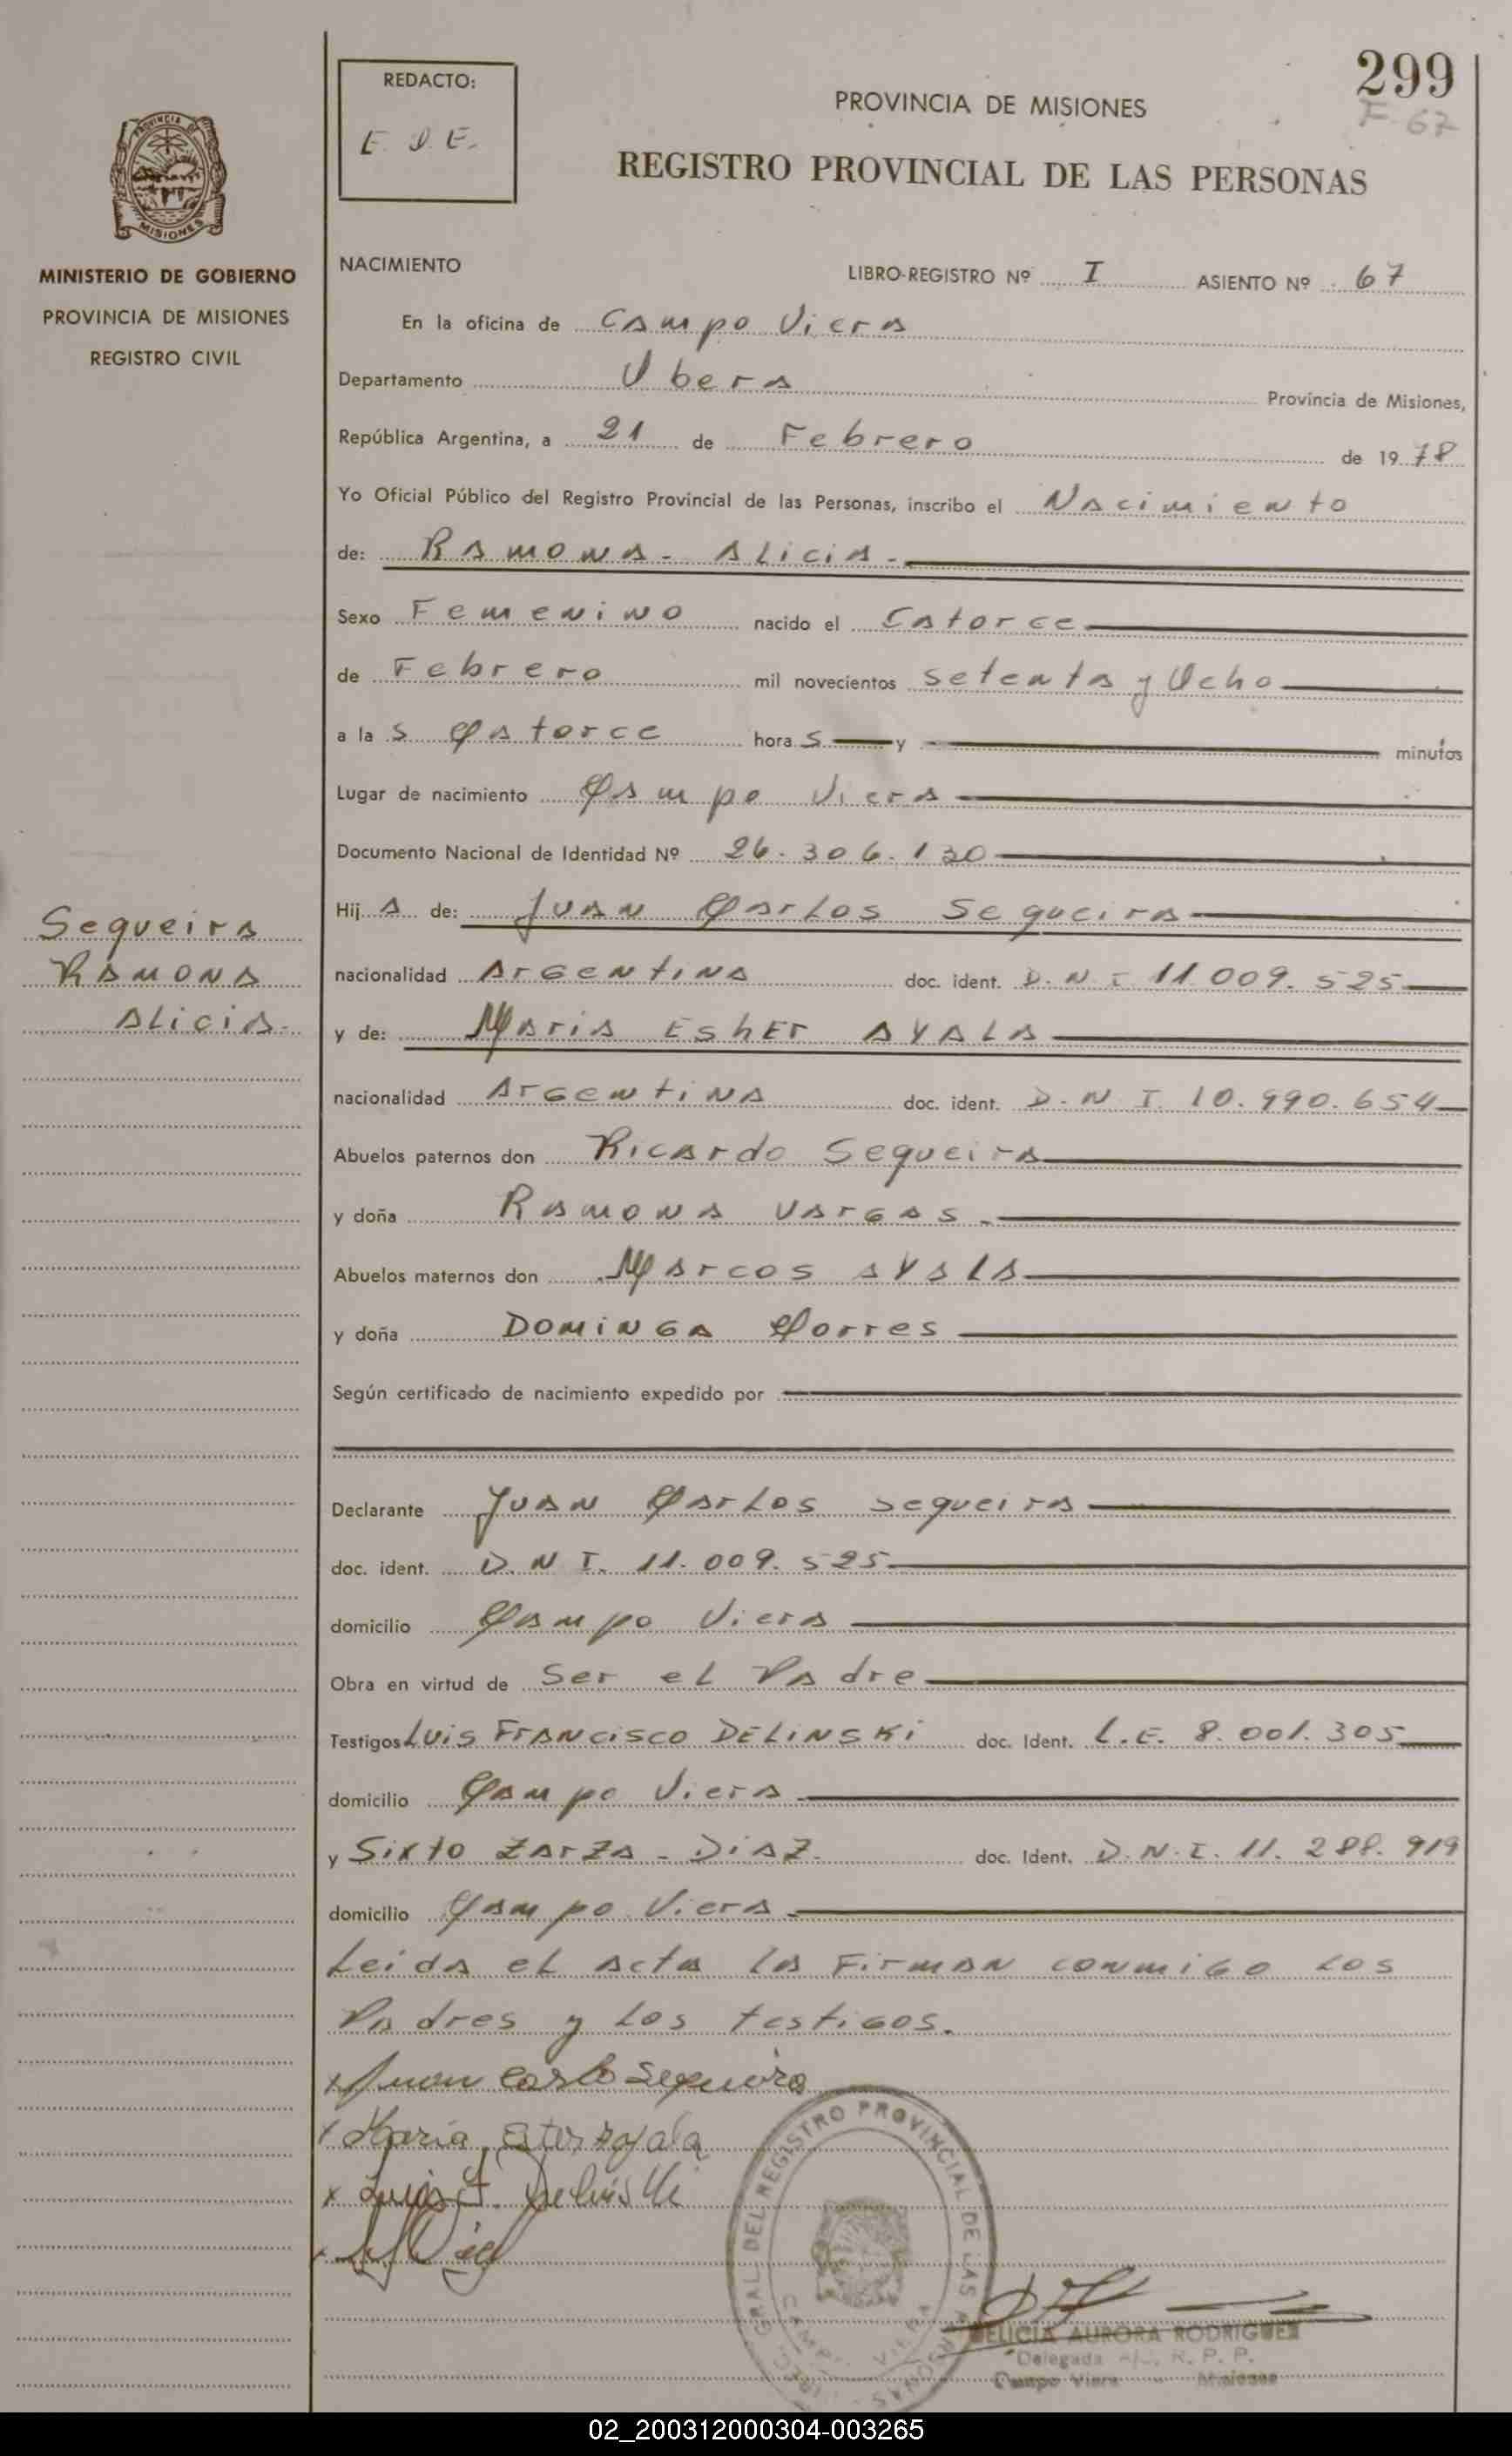 299
F. 67
REDACTO:
E. D. E.
PROVINCIA DE MISIONES
REGISTRO PROVINCIAL DE LAS PERSONAS
PROVINCIA DE
MISIONES
MINISTERIO DE GOBIERNO
PROVINCIA DE MISIONES
REGISTRO CIVIL
NACIMIENTO
LIBRO-REGISTRO Nº I ASIENTO Nº 67
En la oficina de Campo Viera
Departamento Obera Provincia de Misiones,
República Argentina, a 21 de Febrero de 1978
Yo Oficial Público del Registro Provincial de las Personas, inscribo el Nacimiento
de: Ramona - Alicia.
Sexo Femenino nacido el Catorce
de Febrero mil novecientos setenta y Ocho
a la s Catorce hora s y minutos
Lugar de nacimiento Campo Viera
Documento Nacional de Identidad Nº 26.306.130
Hij a de: Juan Carlos Sequeira
nacionalidad Argentina doc. ident. D.N.I 11.009.525
y de: Maria EshEr AYALA
nacionalidad Argentina doc. ident. D.N.I. 10.990.654
Sequeira
Ramona
Alicia.
Abuelos paternos don Ricardo Sequeira
y doña Ramona Vargas.
Abuelos maternos don Marcos AYALA
y doña DOMINGA Torres
Según certificado de nacimiento expedido por
Declarante Juan Carlos Sequeira
doc. ident. D.N.I. 11.009.525
domicilio Campo Viera
Obra en virtud de Ser el Padre
Testigos Luis Francisco DELINSKI doc. Ident. L.E. 8.001.305
domicilio Campo Viera
y Sixto Zarza - Diaz. doc. Ident. D.N.I. 11.288.919
domicilio Campo Viera
Leida el acta la Firman conmigo los
Padres y los testigos.
x Juan Carlo Sequeira
x Maria Ester Ayala
x Luis F. Delinski
REGISTRO PROVINCIAL DE LAS PERSONAS
CAMPO VIERA
DELICIA AURORA RODRIGUEZ
Delegada R. P. P.
Campo Viera Misiones
02_200312000304-003265